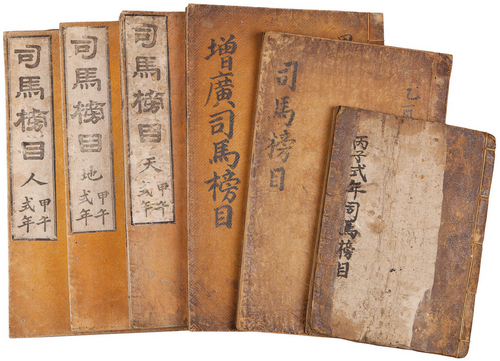 司馬榜目 人 甲午
式年
司馬榜目 地 甲午
式年
司馬榜目 天 甲午
式年
增廣司馬榜目
司馬榜目
丙子式年司馬榜目